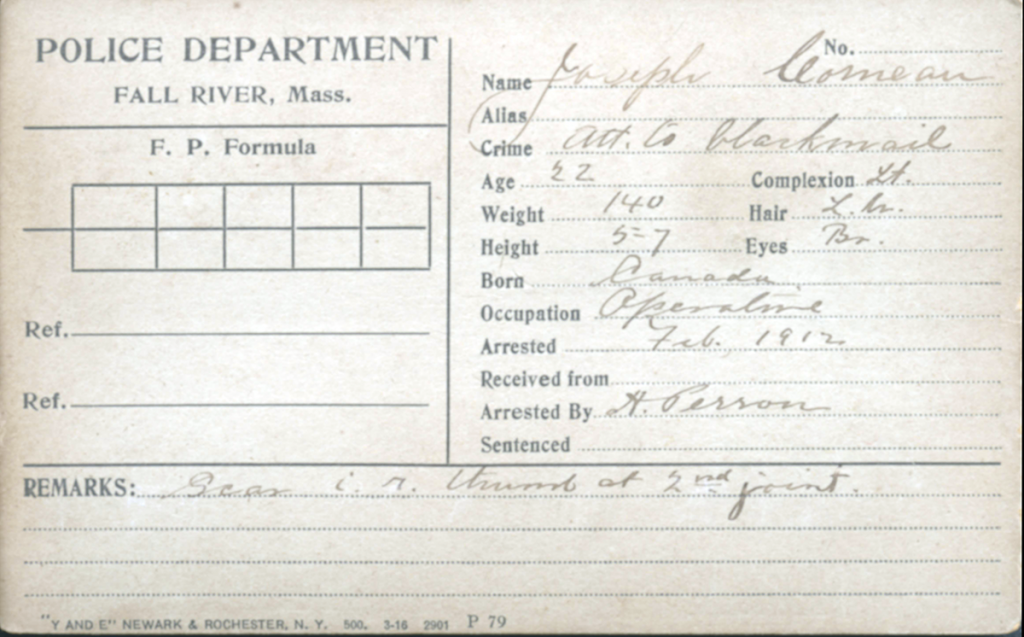 POLICE DEPARTMENT
FALL RIVER, Mass.
F. P. Formula
Ref.
Ref.
No.
Name Joseph Comeau
Alias
Crime Att. to blackmail
Age 22 Complexion Lt.
Weight 140 Hair L. Br.
Height 5-7 Eyes Br.
Born Canada
Occupation Operative
Arrested Feb. 1912
Received from
Arrested By H. Perron
Sentenced
REMARKS: Scar i. r. thumb at 2nd joint.
"Y AND E" NEWARK & ROCHESTER, N. Y. 500. 3-16 2901 P 79